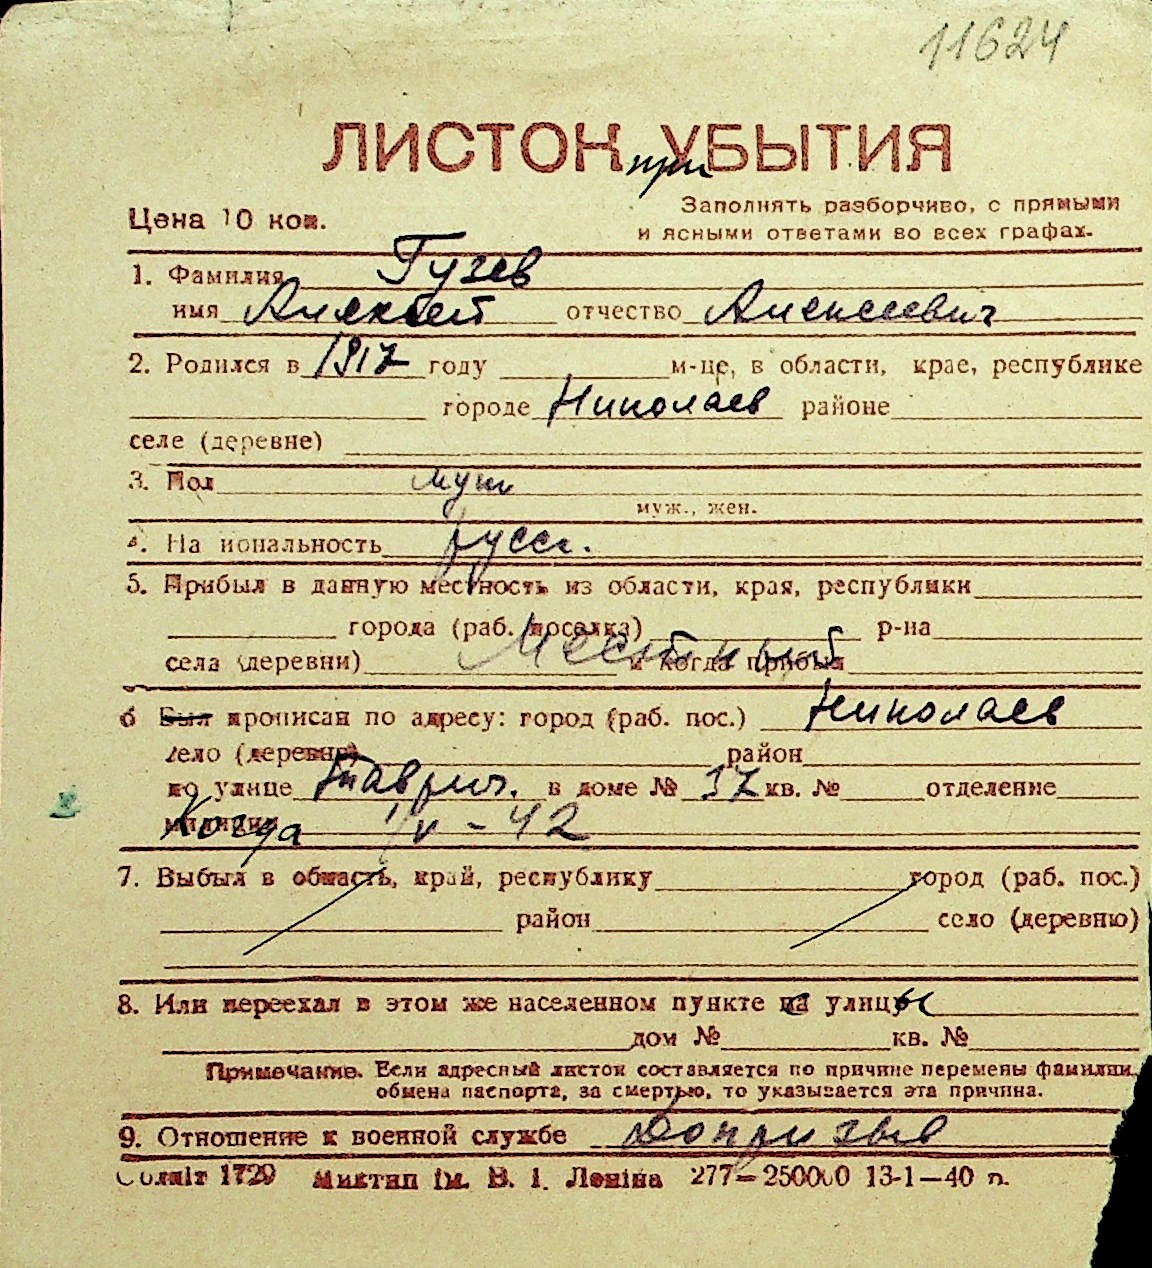 11624
ЛИСТОК при УБЫТИЯ
Цена 10 коп.
Заполнять разборчиво, с прямыми
и ясными ответами во всех графах.
1. Фамилия Гузев
имя Алексей отчество Алексеевич
2. Родился в 1917 году м-це, в области, крае, республике
городе Николаев районе
селе (деревне)
3. Пол муж
муж., жен.
4. На иональность русск.
5. Прибыл в данную местность из области, края, республики
города (раб. поселка) р-на
села (деревни) Местный и когда прибыл
6 Был прописан по адресу: город (раб. пос.) Николаев
село (деревня) район
по улице Таврич. в доме № 37 кв. № отделение
милиции Когда 1/V-42
7. Выбыл в область, край, республику город (раб. пос.)
район село (деревню)
8. Или переехал в этом же населенном пункте с улицы
дом № кв. №
Примечание. Если адресный листок составляется по причине перемены фамилии,
обмена паспорта, за смертью, то указывается эта причина.
9. Отношение к военной службе Допризыв
Облліт 1729 Миктип ім. В. І. Леніна 277—250000 13-1—40 п.